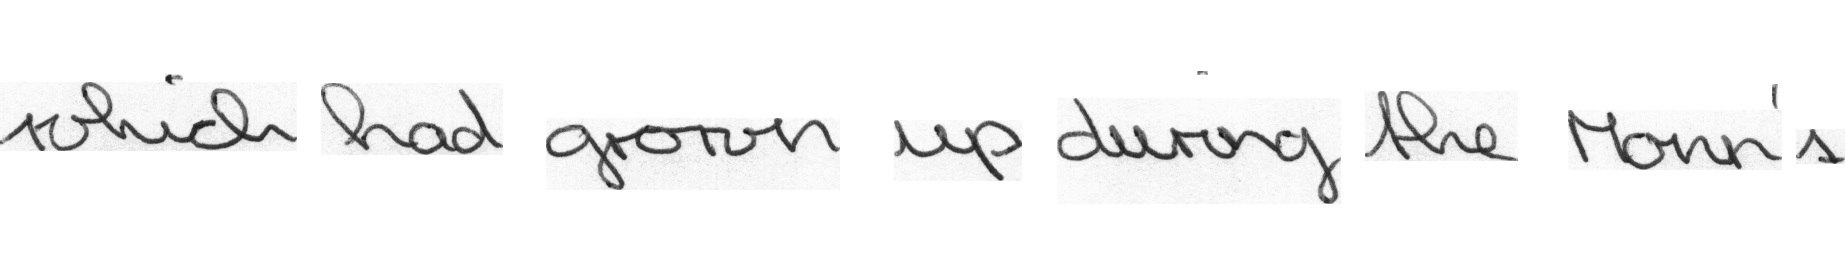 which had grown up during the Monn's